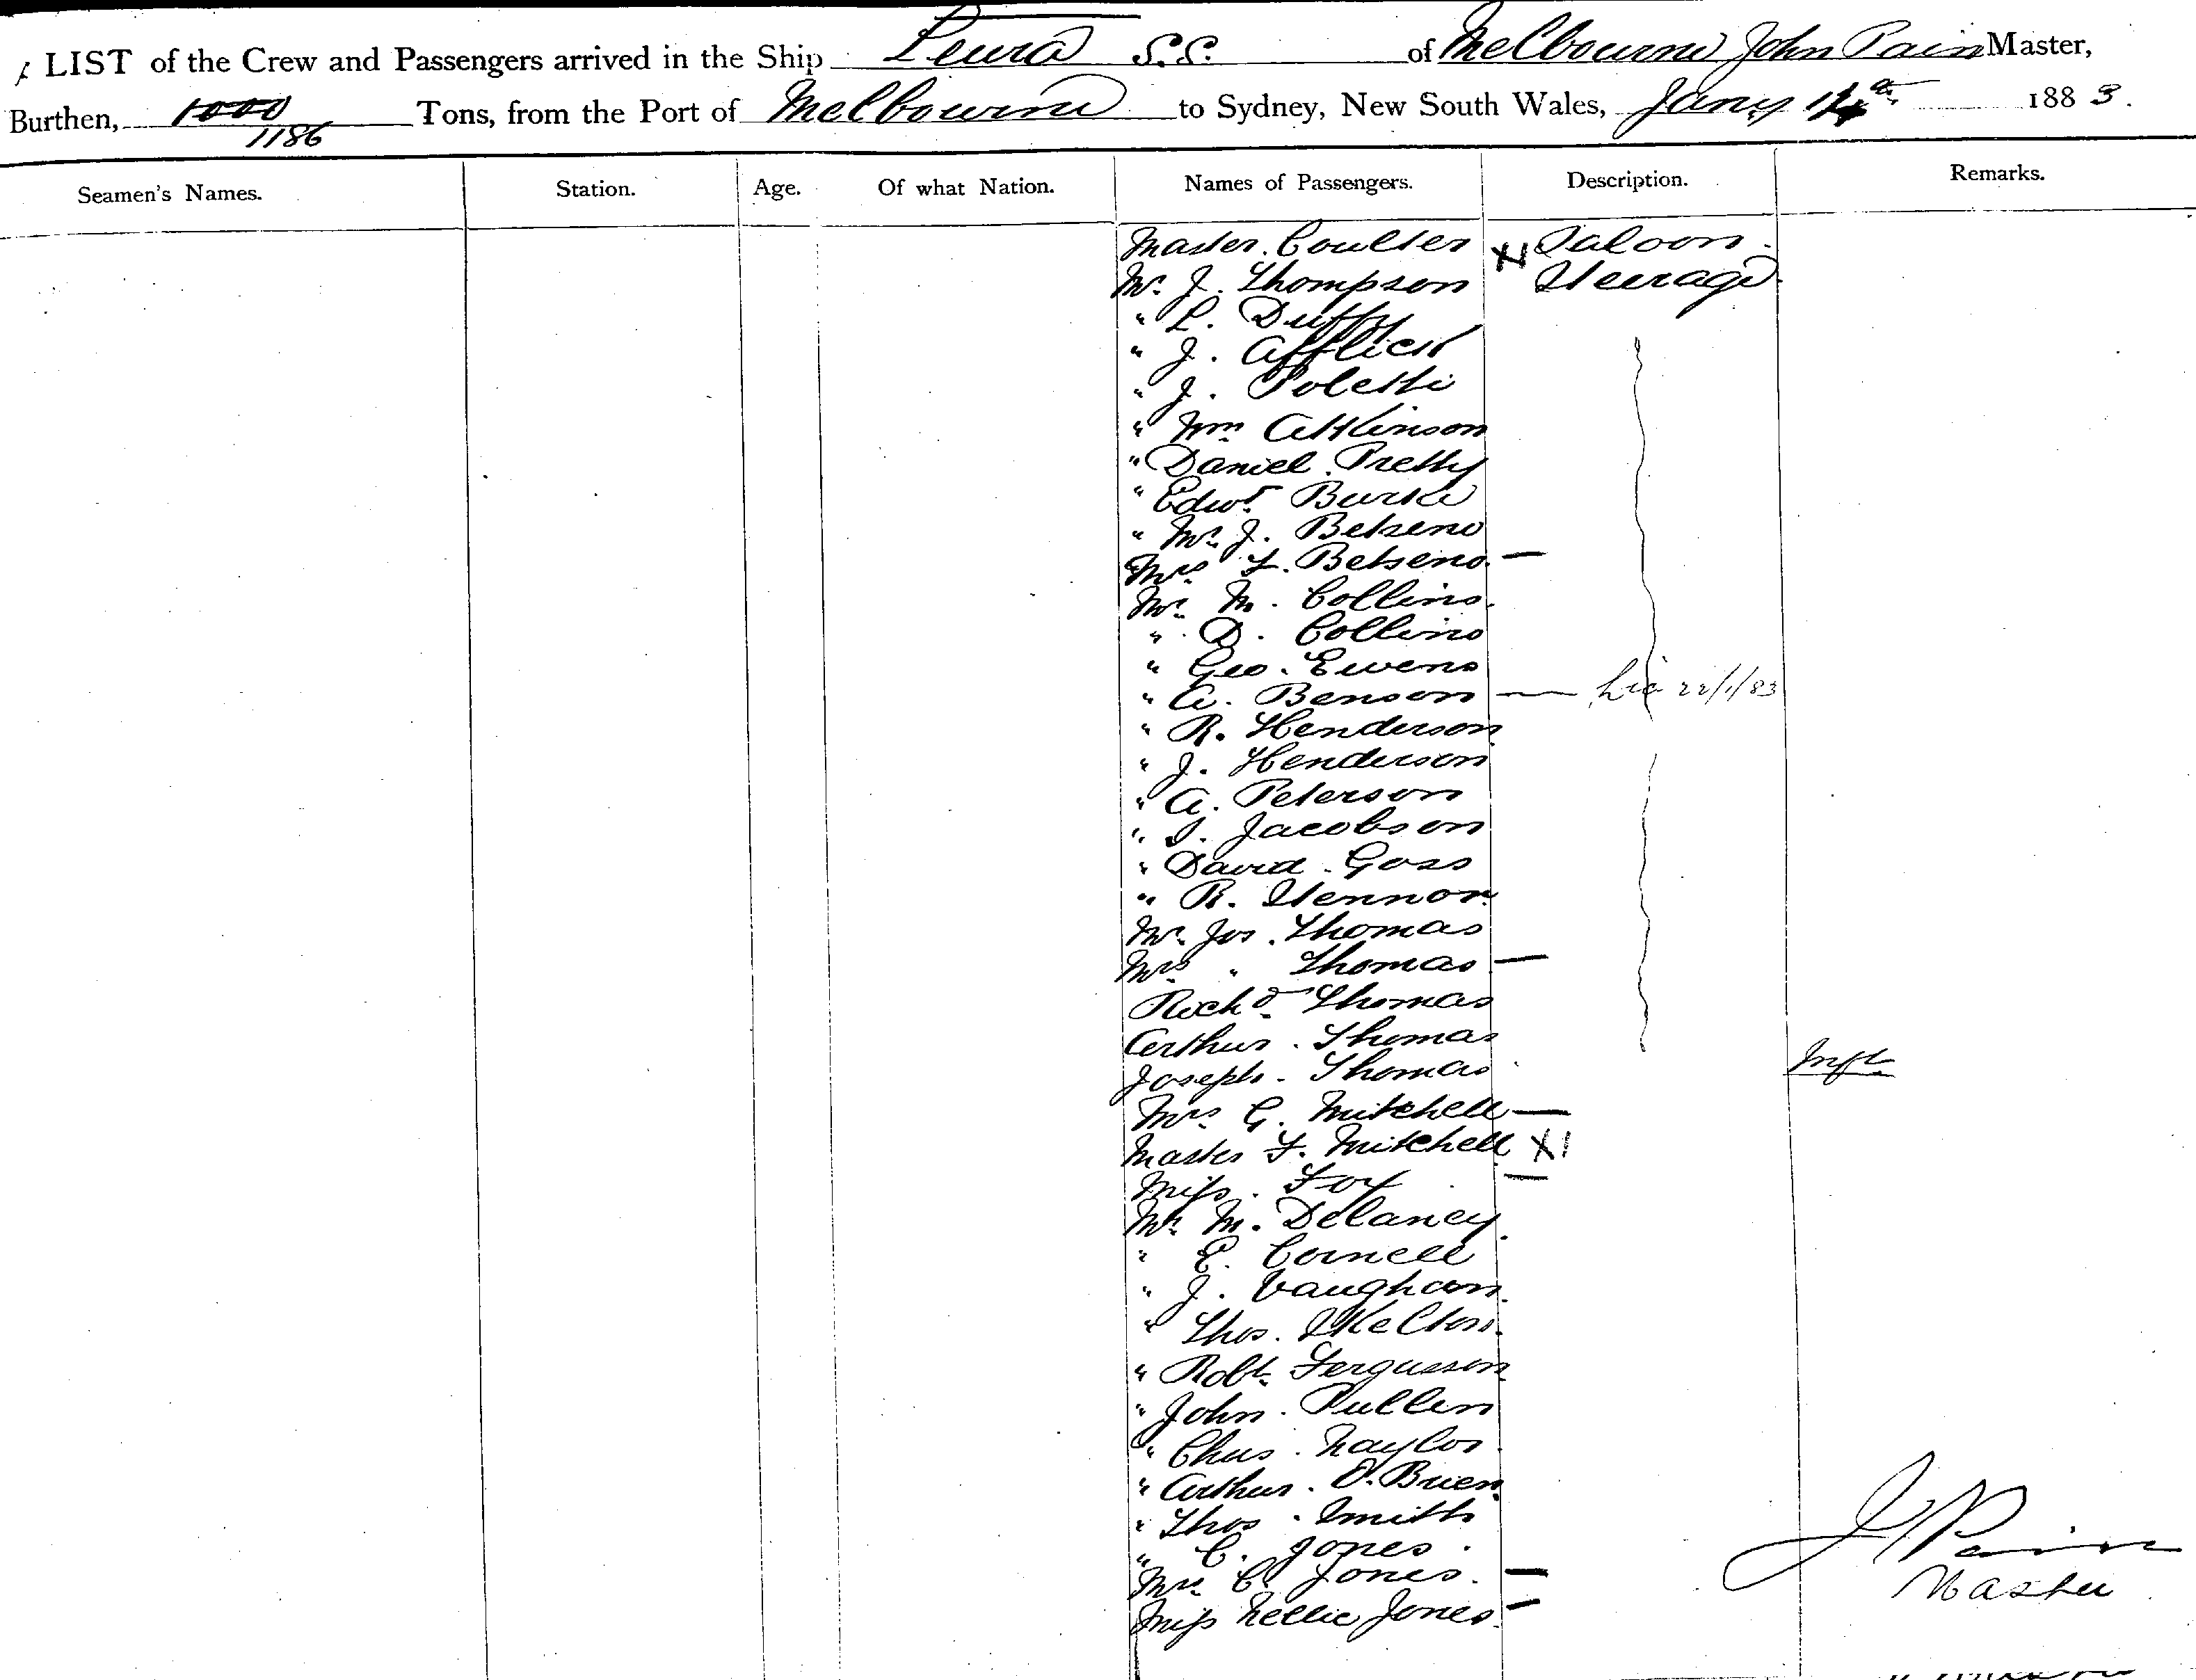 LIST of the Crew and Passengers arrived in the Ship Leura S.S. of Melbourne John Pain Master,
Burthen, 1000 Tons, from the Port of Melbourne to Sydney, New South Wales, Jany 14th 1883.
1186
Seamen's Names. Station. Age. Of what Nation. Names of Passengers. Description. Remarks.
Master. Coulter X Saloon.
Mr. J. Thompson Steerage
" L. Duffy
" J. Afflick
" J. Poletti
" Wm Attkinson
" Daniel. Pretty
" Edwd. Burke
" Mr. J. Betseno
Mrs F. Betseno. —
Mr. M. Collins.
" D. Collins
" Geo. Ewens
" A. Benson — 22/1/83
" R. Henderson
" J. Henderson
" A. Peterson
" J. Jacobson
" David. Goss
" R. Stennor.
Mr. Jos. Thomas
Mrs " Thomas —
Richd Thomas
Arthur. Thomas
Joseph. Thomas Inft
Mrs G. Mitchell —
Master F. Mitchell X1
Miss. Foy —
Mr. M. Delaney.
" E. Cornell
" J. Vaughan.
" Thos. Skelton.
" Robt. Fergusson
" John. Pullen
" Chas. Naylor.
" Arthur. O'Brien
" Thos. Smith
" C. Jones.
Mrs. C. Jones. —
Miss Nellie Jones. —
J Pain
Master